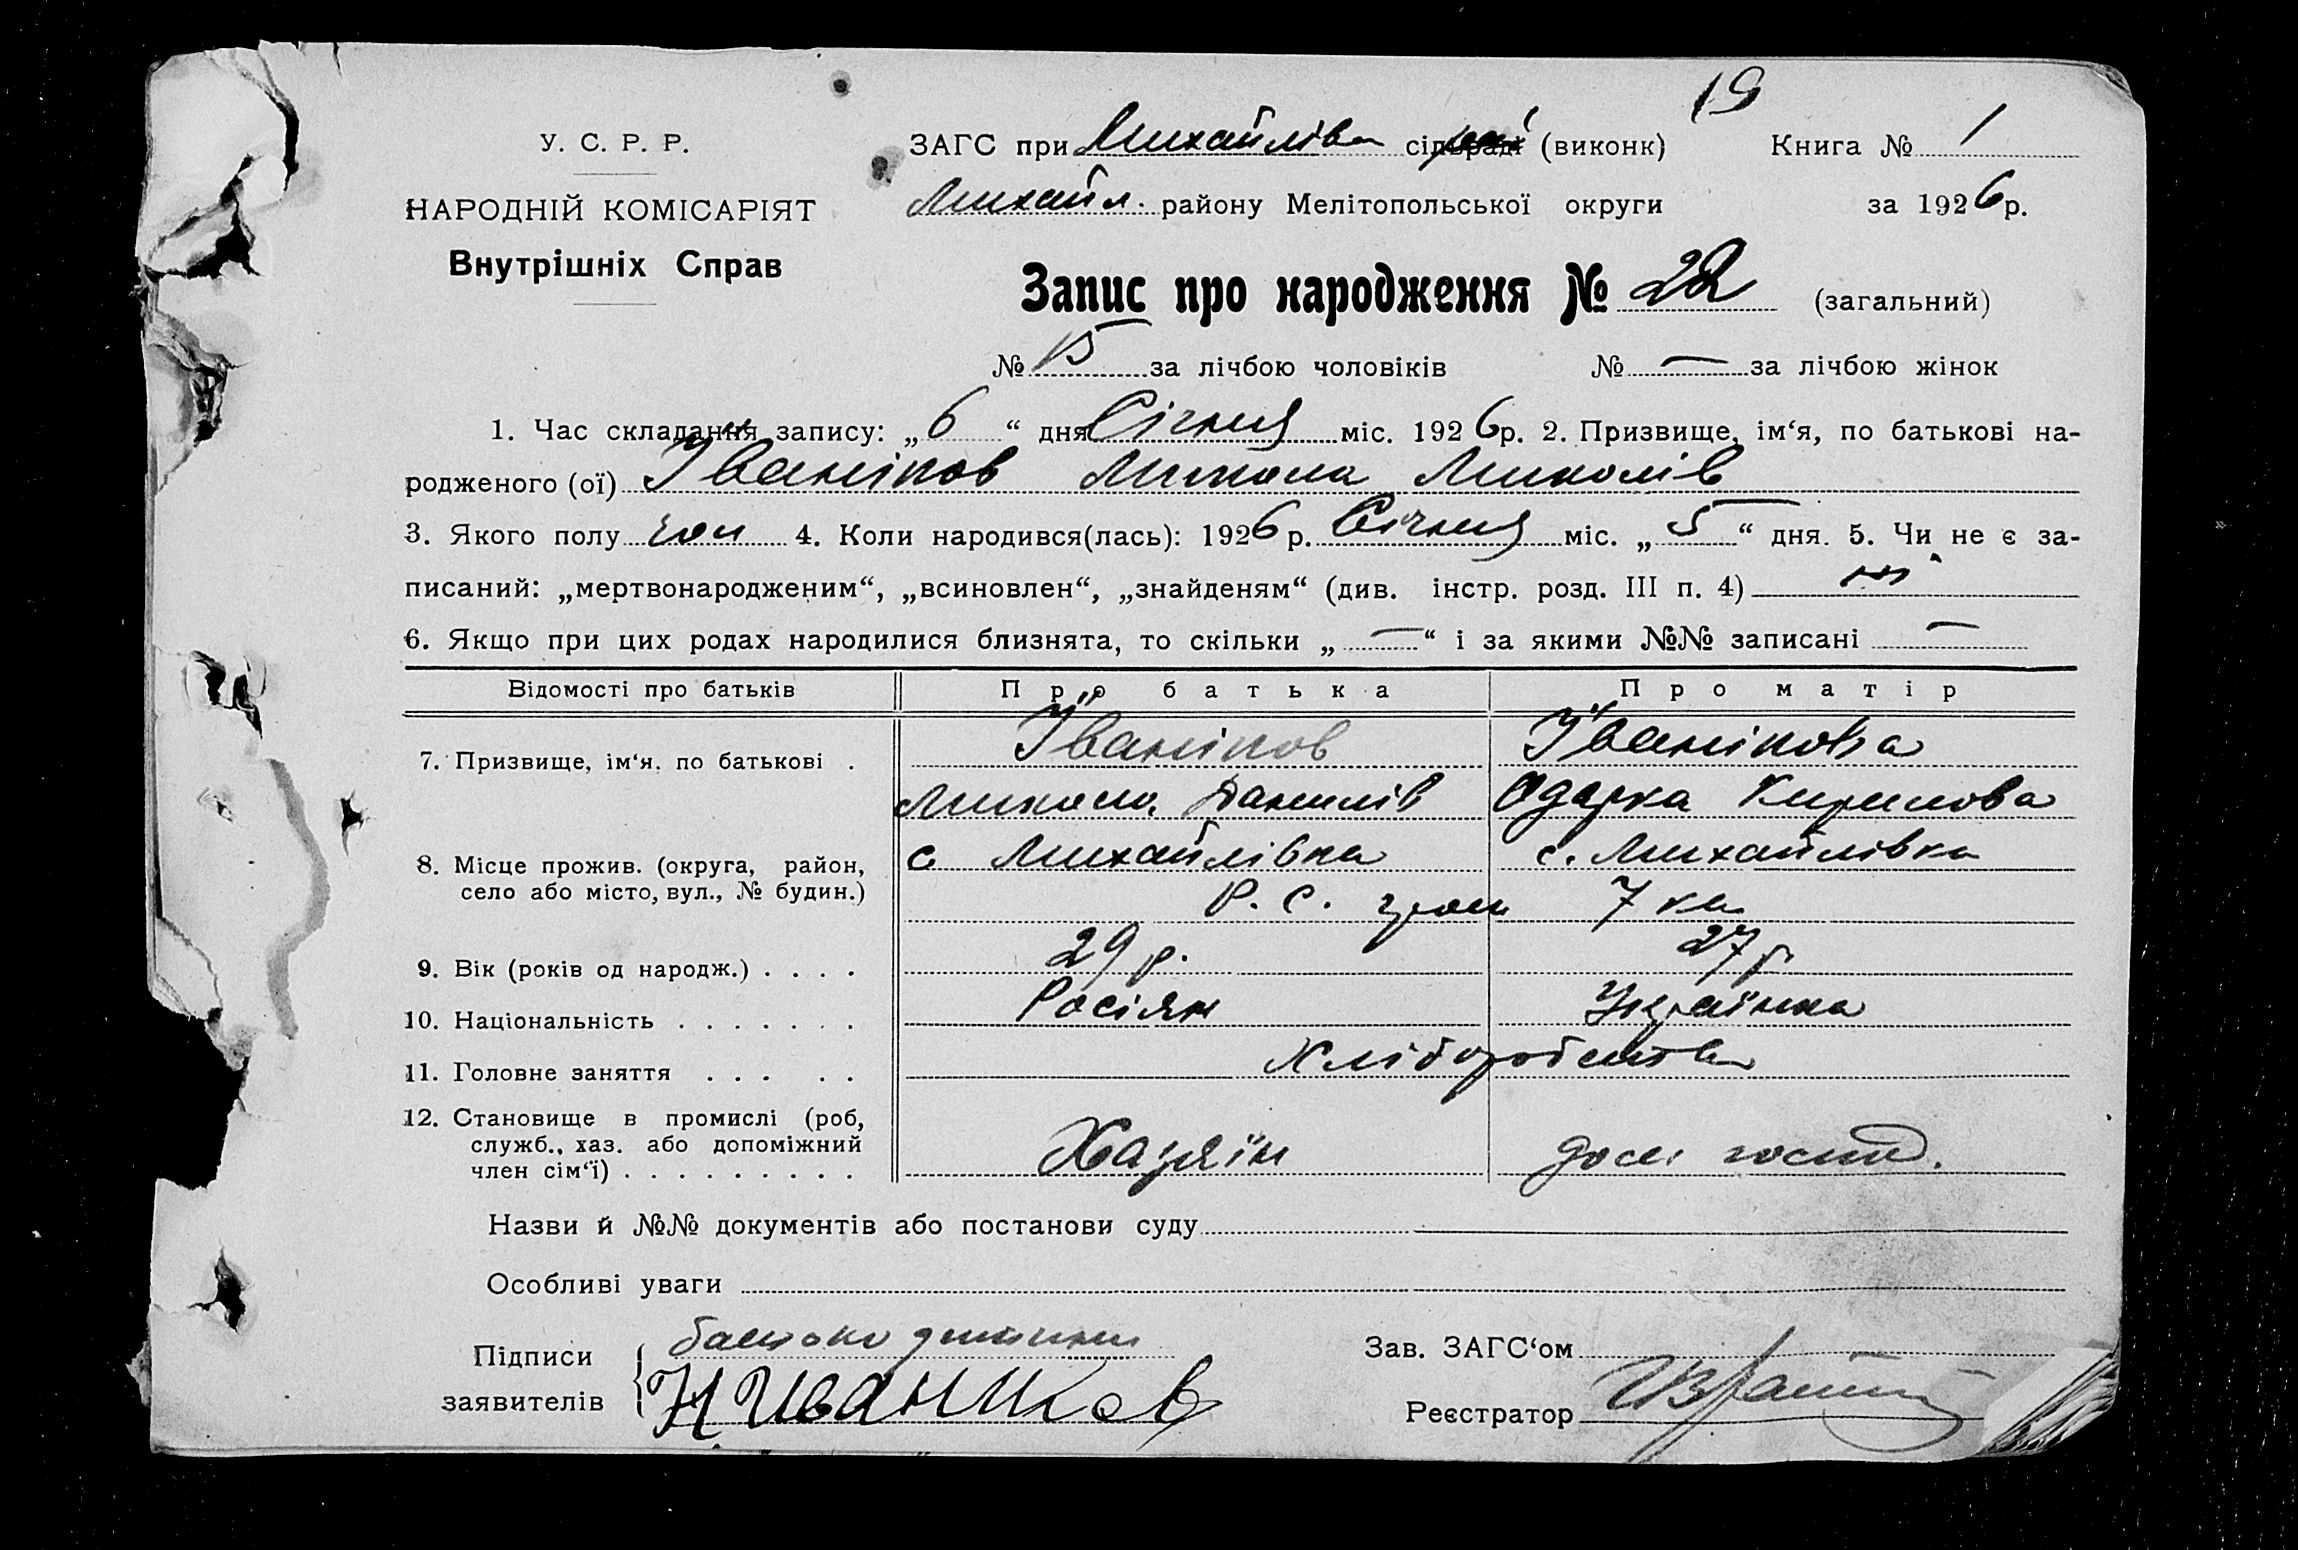 19
У. С. Р. Р.
НАРОДНІЙ КОМІСАРІЯТ
Внутрішніх Справ
ЗАГС при Михайлівк сільраді (виконк) Книга № 1
Михайл. району Мелітопольської округи за 1926 р.
Запис про народження № 22 (загальний)
№ 15 за лічбою чоловіків № — за лічбою жінок
1. Час складання запису: „6“ дня Січня міс. 1926 р. 2. Призвище, ім‘я, по батькові на-
родженого (ої) Іваніков Микола Миколів
3. Якого полу чол 4. Коли народився(лась): 1926 р. Січня міс. „5“ дня. 5. Чи не є за-
писаний: „мертвонародженим“, „всиновлен“, „знайденям“ (див. інстр. розд. III п. 4) ні
6. Якщо при цих родах народилися близнята, то скільки „—“ і за якими №№ записані —
Відомості про батьків Про батька Про матір
7. Призвище, ім‘я, по батькові . Іваніков Іванікова
Микола Данилів Одарка Кирилова
8. Місце прожив. (округа, район, село або місто, вул., № будин.) с Михайлівка с. Михайлівка
Р. С. гром 7 кв
9. Вік (років од народж.) . . . . 29 р. 27 р.
10. Національність . . . . . . . Росіян Українка
11. Головне заняття . . . . . Хліборобство
12. Становище в промислі (роб, служб., хаз. або допоміжний член сім‘ї) . . . . . . . . . Хазяїн дом госпд.
Назви й №№ документів або постанови суду
Особливі уваги
Підписи заявителів батько дитини
Н Иваников
Зав. ЗАГС‘ом
Реєстратор